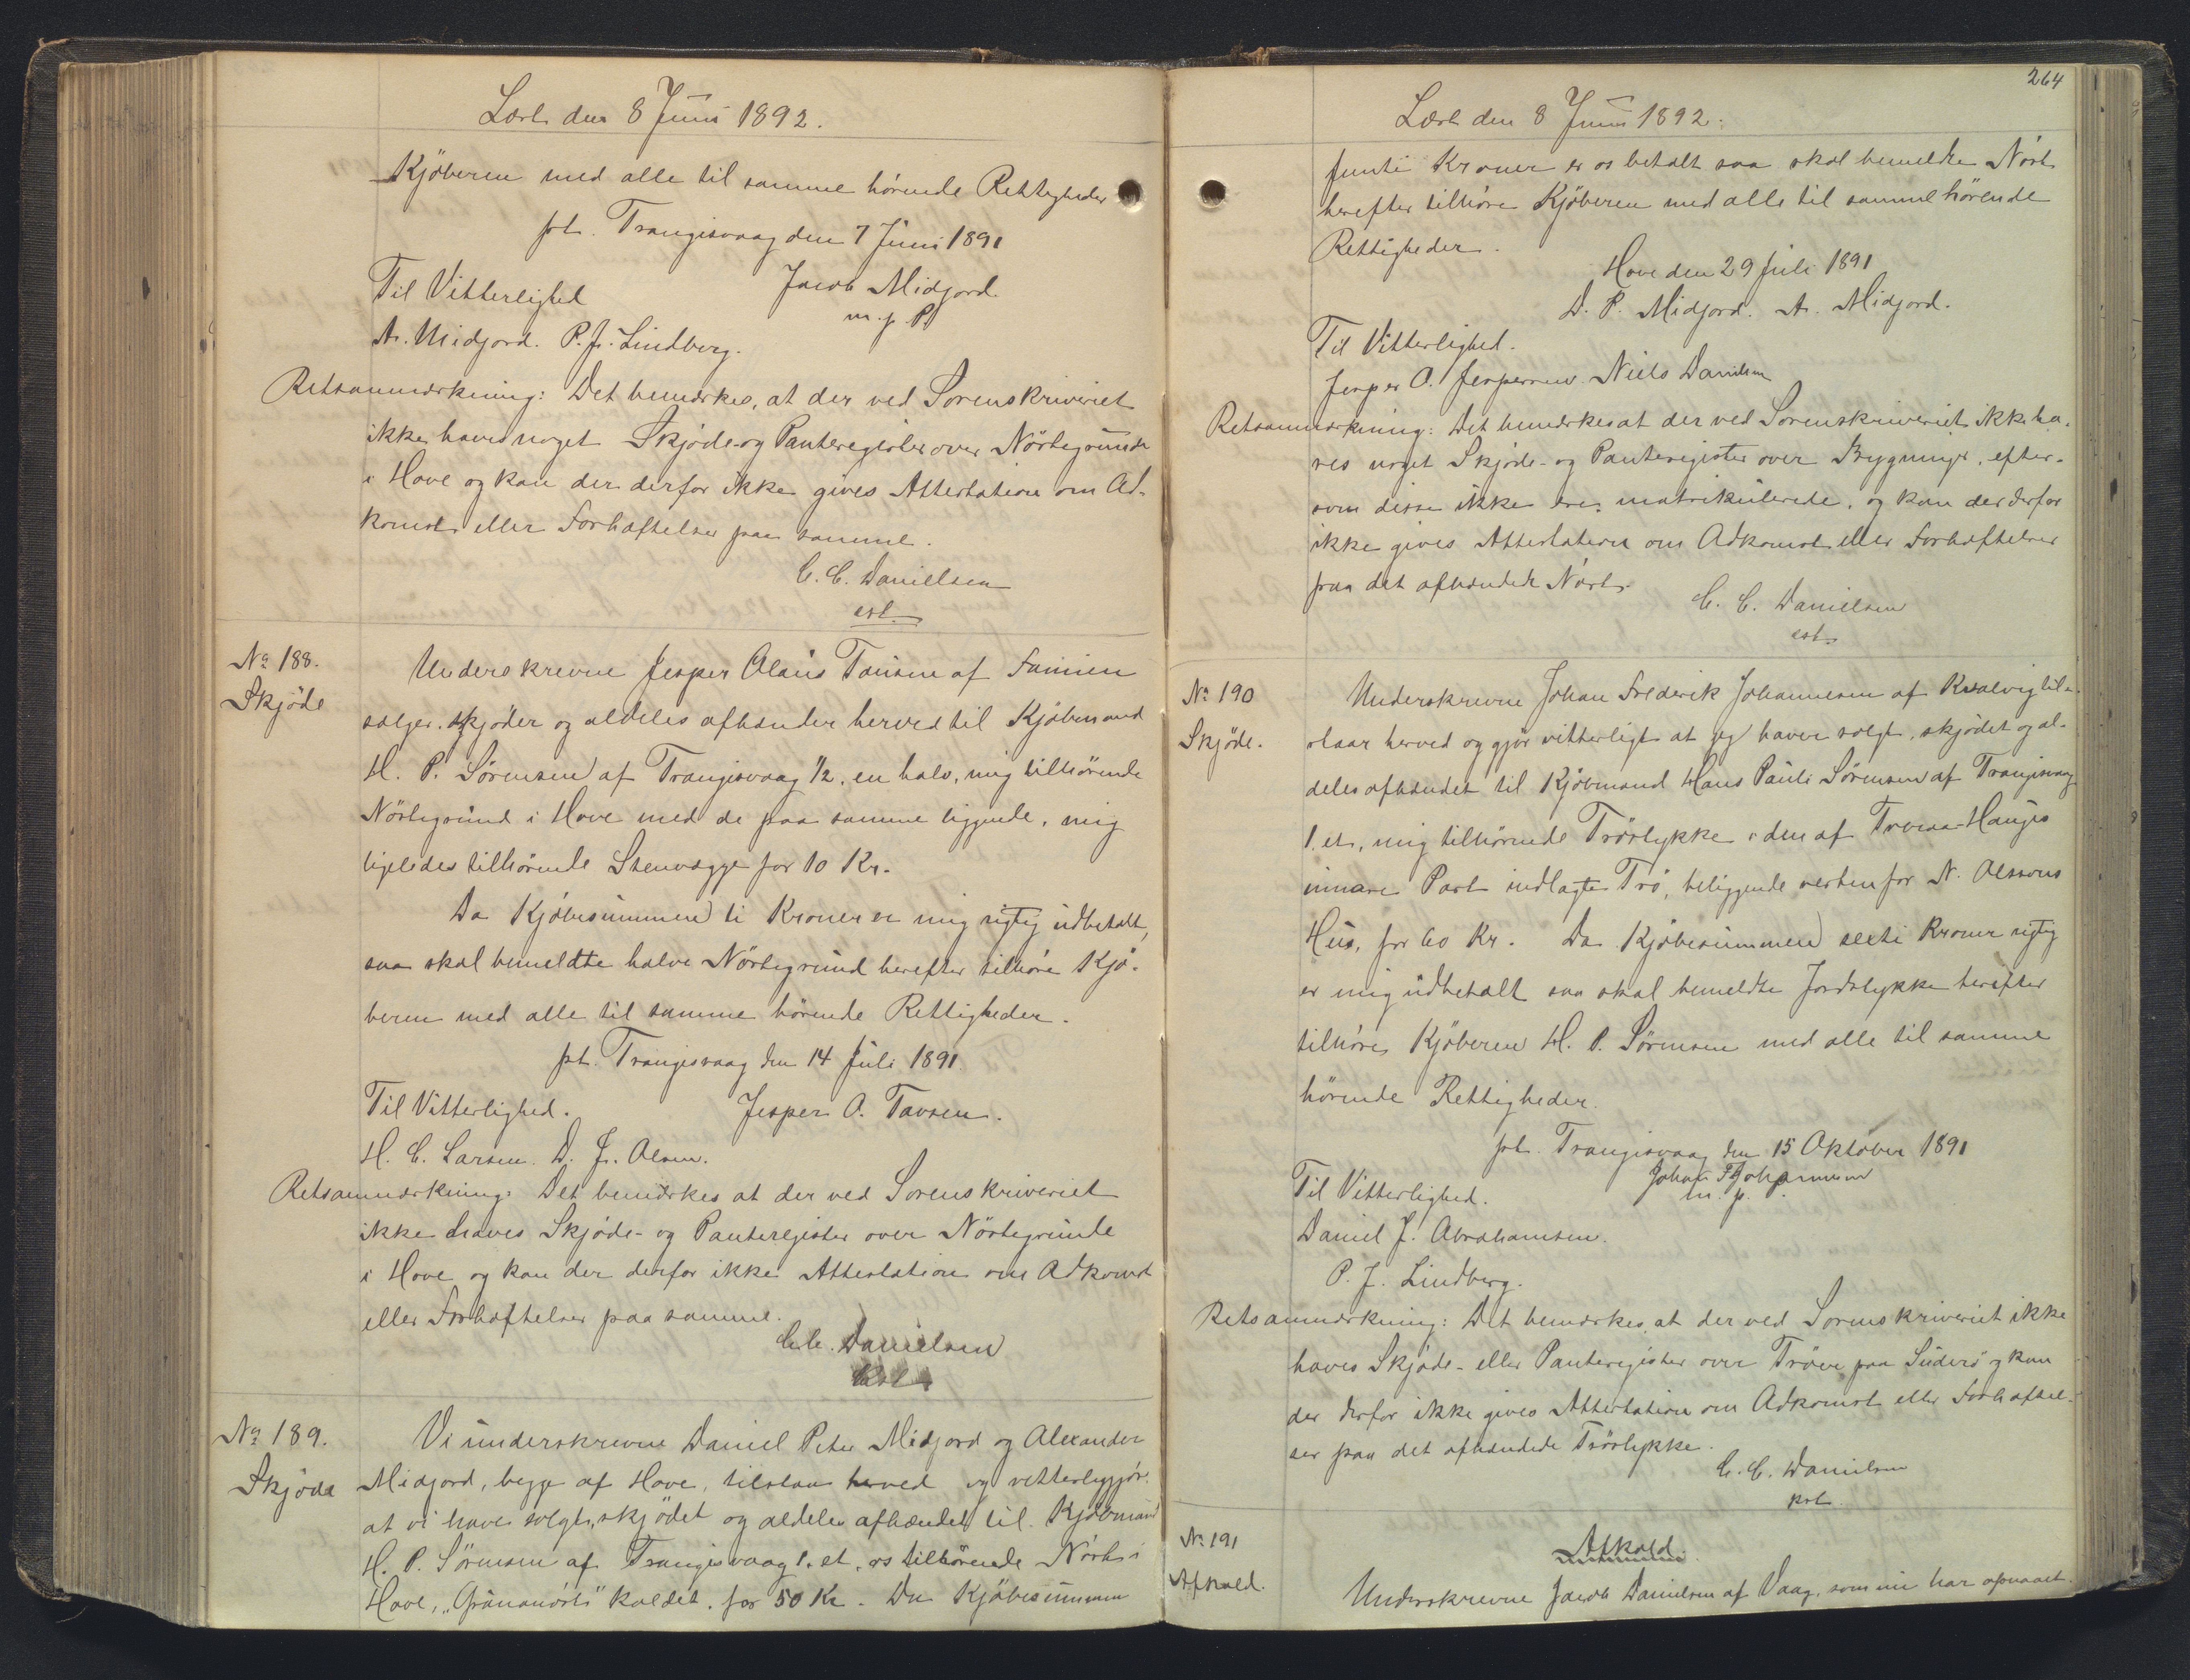 Læst den 8 Juni 1892.
Kjöberen med alle til samme hörende Rettigheder
pt. Trangisvaag den 7 Juni 1891
Til Vitterlighed
Jacob Midjord.
m. p. P.
A. Midjord. P. J. Lindberg.
Retsanmærkning: Det bemærkes, at der ved Sorenskriveriet
ikke haves noget Skjöde- og Panteregister over Nöstegrunde
i Hove og kan der derfor ikke gives Attestation om Ad-
komst eller Forhæftelser paa samme.
C. C. Danielsen
cst.
No 188.
Skjöde
Underskrevne Jesper Olaus Tausen af Famien
sælger, skjöder og aldeles afhænder herved til Kjöbmand
H. P. Sörensen af Trangisvaag 1/2, en halv, mig tilhörende
Nöstegrund i Hove med de paa samme liggende, mig
ligeledes tilhörende Stenvægge for 10 Kr.
Da Kjöbesummen ti Kroner er mig rigtig udbetalt,
saa skal bemeldte halve Nöstegrund herefter tilhöre Kjö-
beren med alle til samme hörende Rettigheder.
pt. Trangisvaag den 14 Juli 1891.
Til Vitterlighed.
Jesper O. Tavsen.
H. C. Larsen. D. J. Olsen.
Retsanmærkning: Det bemærkes at der ved Sorenskriveriet
ikke haves Skjöde- og Panteregister over Nöstegrunde
i Hove og kan der derfor ikke Attestation om Adkomst
eller Forhæftelser paa samme.
C. C. Danielsen
cst
No 189.
Skjöde
Vi underskrevne Daniel Peter Midjord og Alexander
Midjord, begge af Hove, tilstaa herved og vitterliggjör:
at vi have solgt, skjödet og aldeles afhændet til Kjöbmand
H. P. Sörensen af Trangisvaag 1, et, os tilhörende Nöst i
Hove, "Gränanöst" kaldet, for 50 Kr. Da Kjöbesummen
264
Læst den 8 Juni 1892.
femti Kroner er os betalt saa skal bemeldte Nöst
herefter tilhöre Kjöberen med alle til samme hörende
Rettigheder.
Hove den 29 Juli 1891
D. P. Midjord. A. Midjord.
Til Vitterlighed.
Jesper O. Jespersen. Niels Danielsen
Retsanmærkning: Det bemærkes at der ved Sorenskriveriet ikke ha-
ves noget Skjöde- og Panteregister over Bygninger, efter-
som disse ikke ere matrikulerede, og kan der derfor
ikke gives Attestation om Adkomst eller Forhæftelser
paa det afhændede Nöst.
C. C. Danielsen
cst.
No 190
Skjöde.
Underskrevne Johan Frederik Johannesen af Kvalvig til-
staar herved og gjör vitterligt at jeg haver solgt, skjödet og al-
deles afhændet til Kjöbmand Hans Pauli Sörensen af Trangisvaag
1, et, mig tilhörende Tröstykke i den af Tveraa-Hauges
innare Part indlagte Trö, beliggende vesten for N. Olssons
Hus, for 60 Kr. Da Kjöbesummen sexti Kroner rigtig
er mig udbetalt saa skal bemeldte Jordstykke herefter
tilhöre Kjöberen H. P. Sörensen med alle til samme
hörende Rettigheder.
pt. Trangisvaag den 15 Oktober 1891
Johan F Johannesen
m. p.
Til Vitterlighed.
Daniel J. Abrahamsen.
P. J. Lindberg.
Retsanmærkning: Det bemærkes, at der ved Sorenskriveriet ikke
haves Skjöde- eller Panteregister over Tröer paa Suderö og kan
der derfor ikke gives Attestation om Adkomst eller Forhæftel-
ser paa det afhændede Tröstykke.
C. C. Danielsen
cst
No 191
Afkald.
Afkald.
Underskrevne Jacob Danielsen af Vaag, som nu har opnaaet